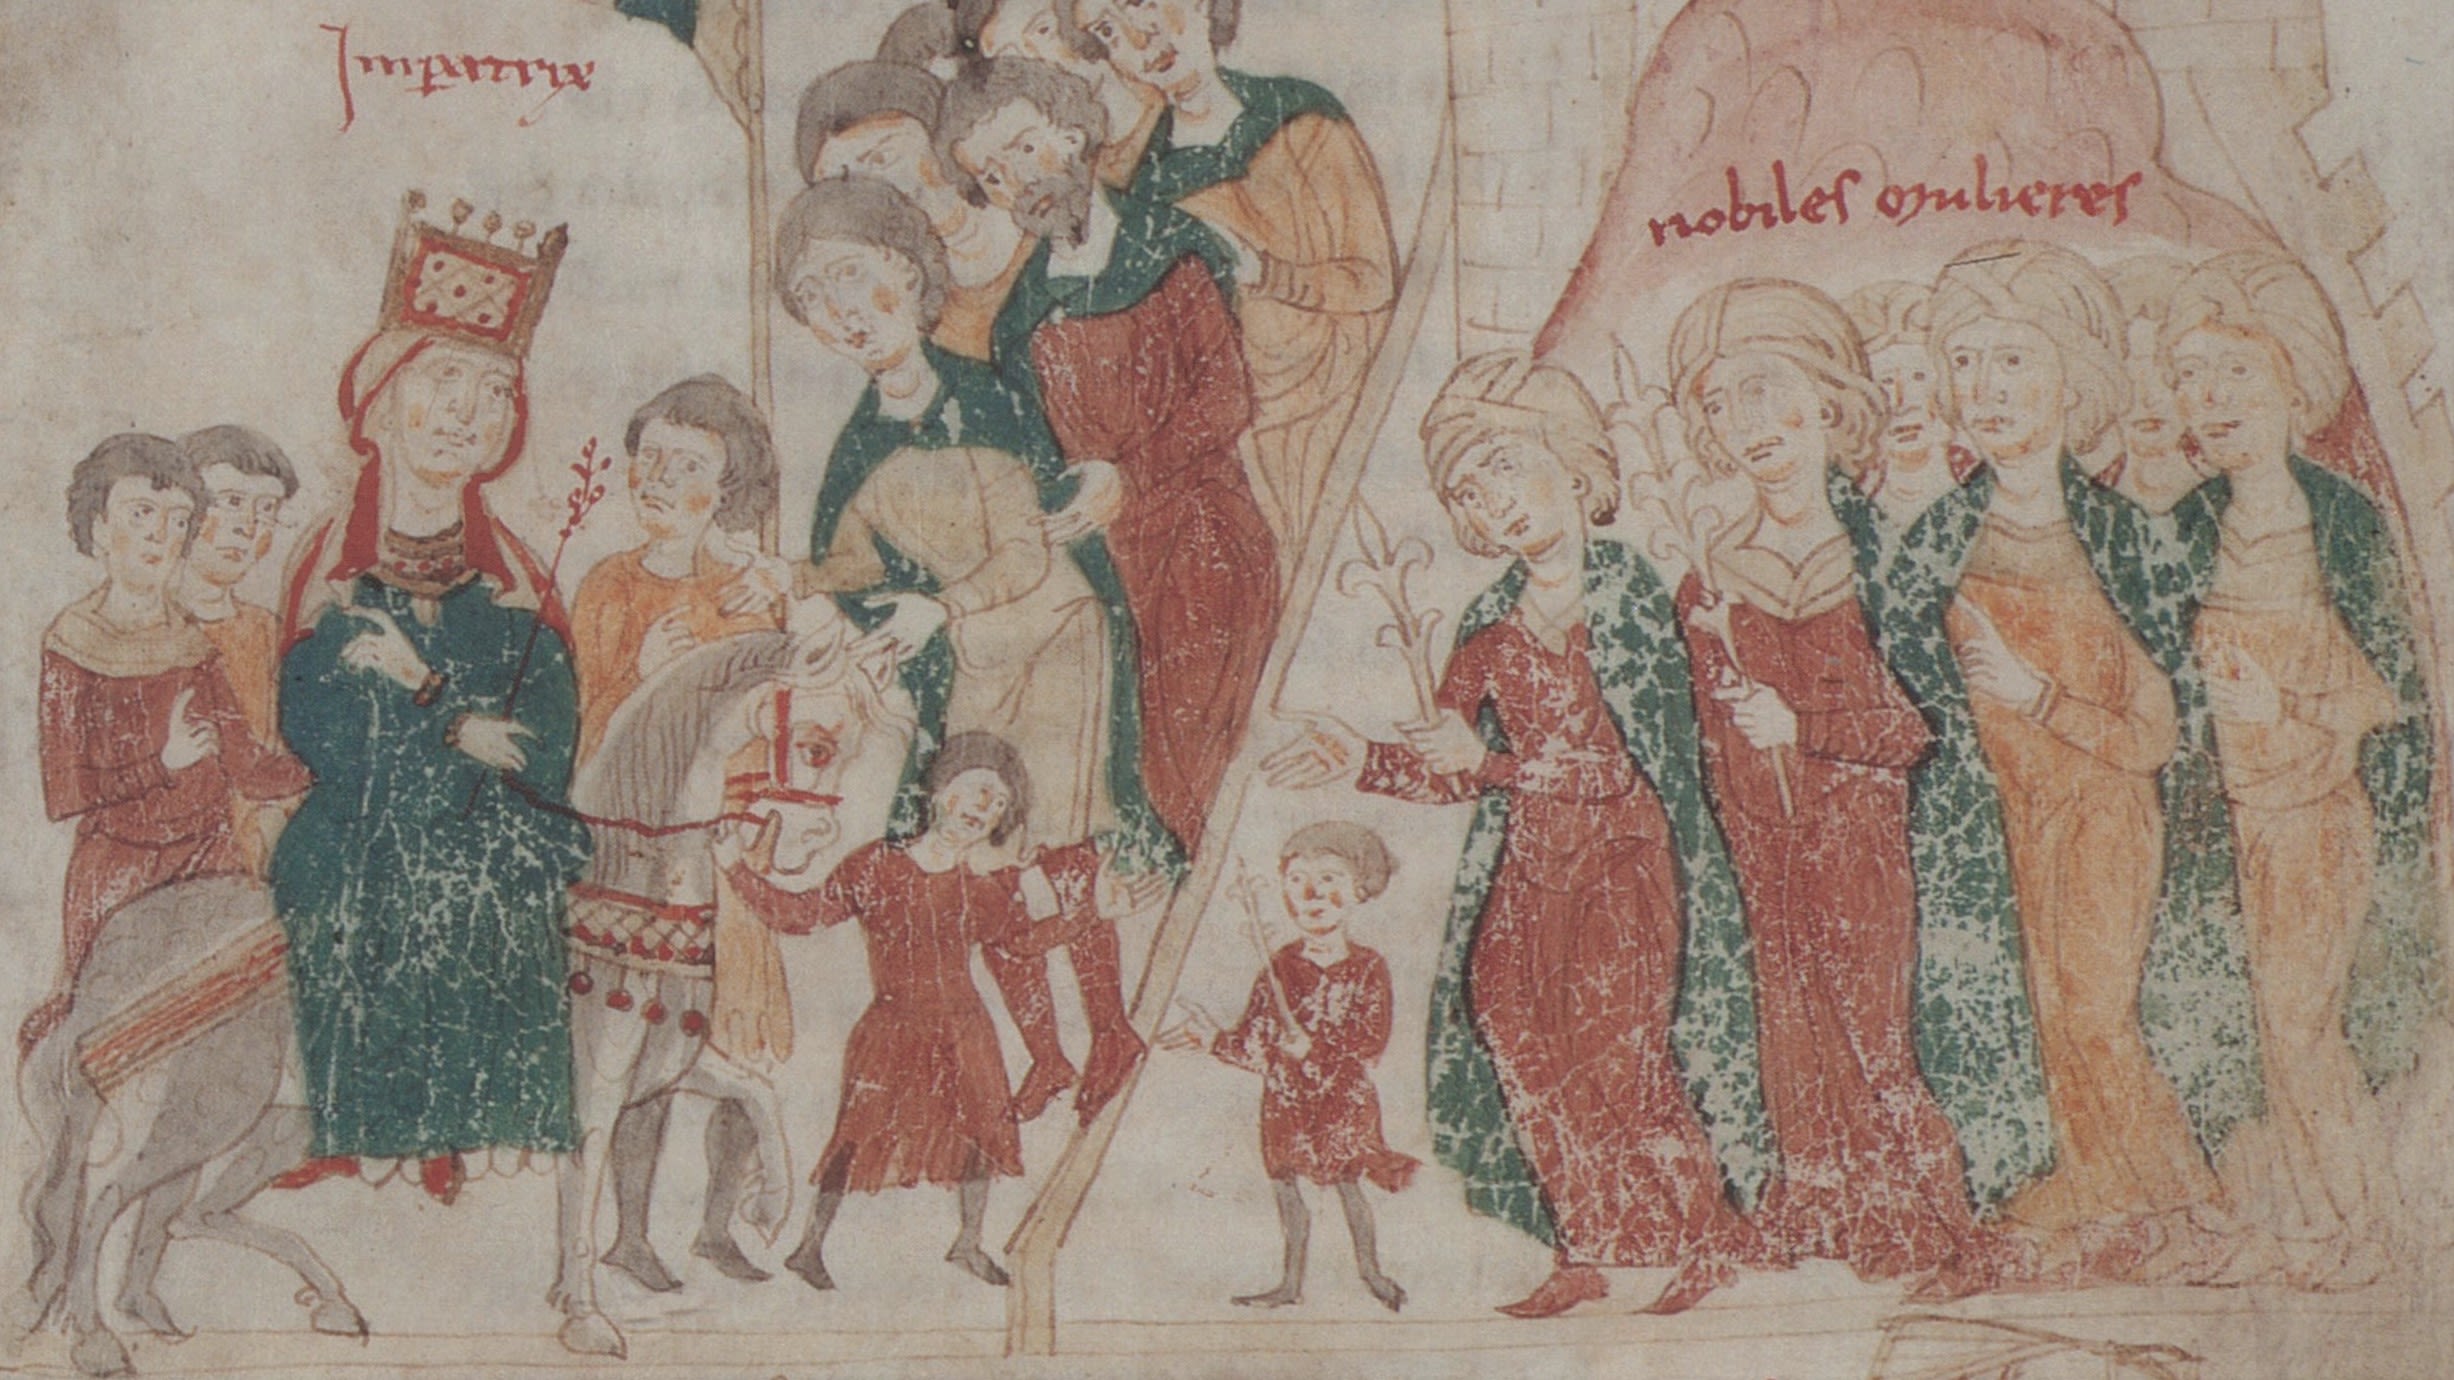 Imꝑatrix
nobiles mulieres